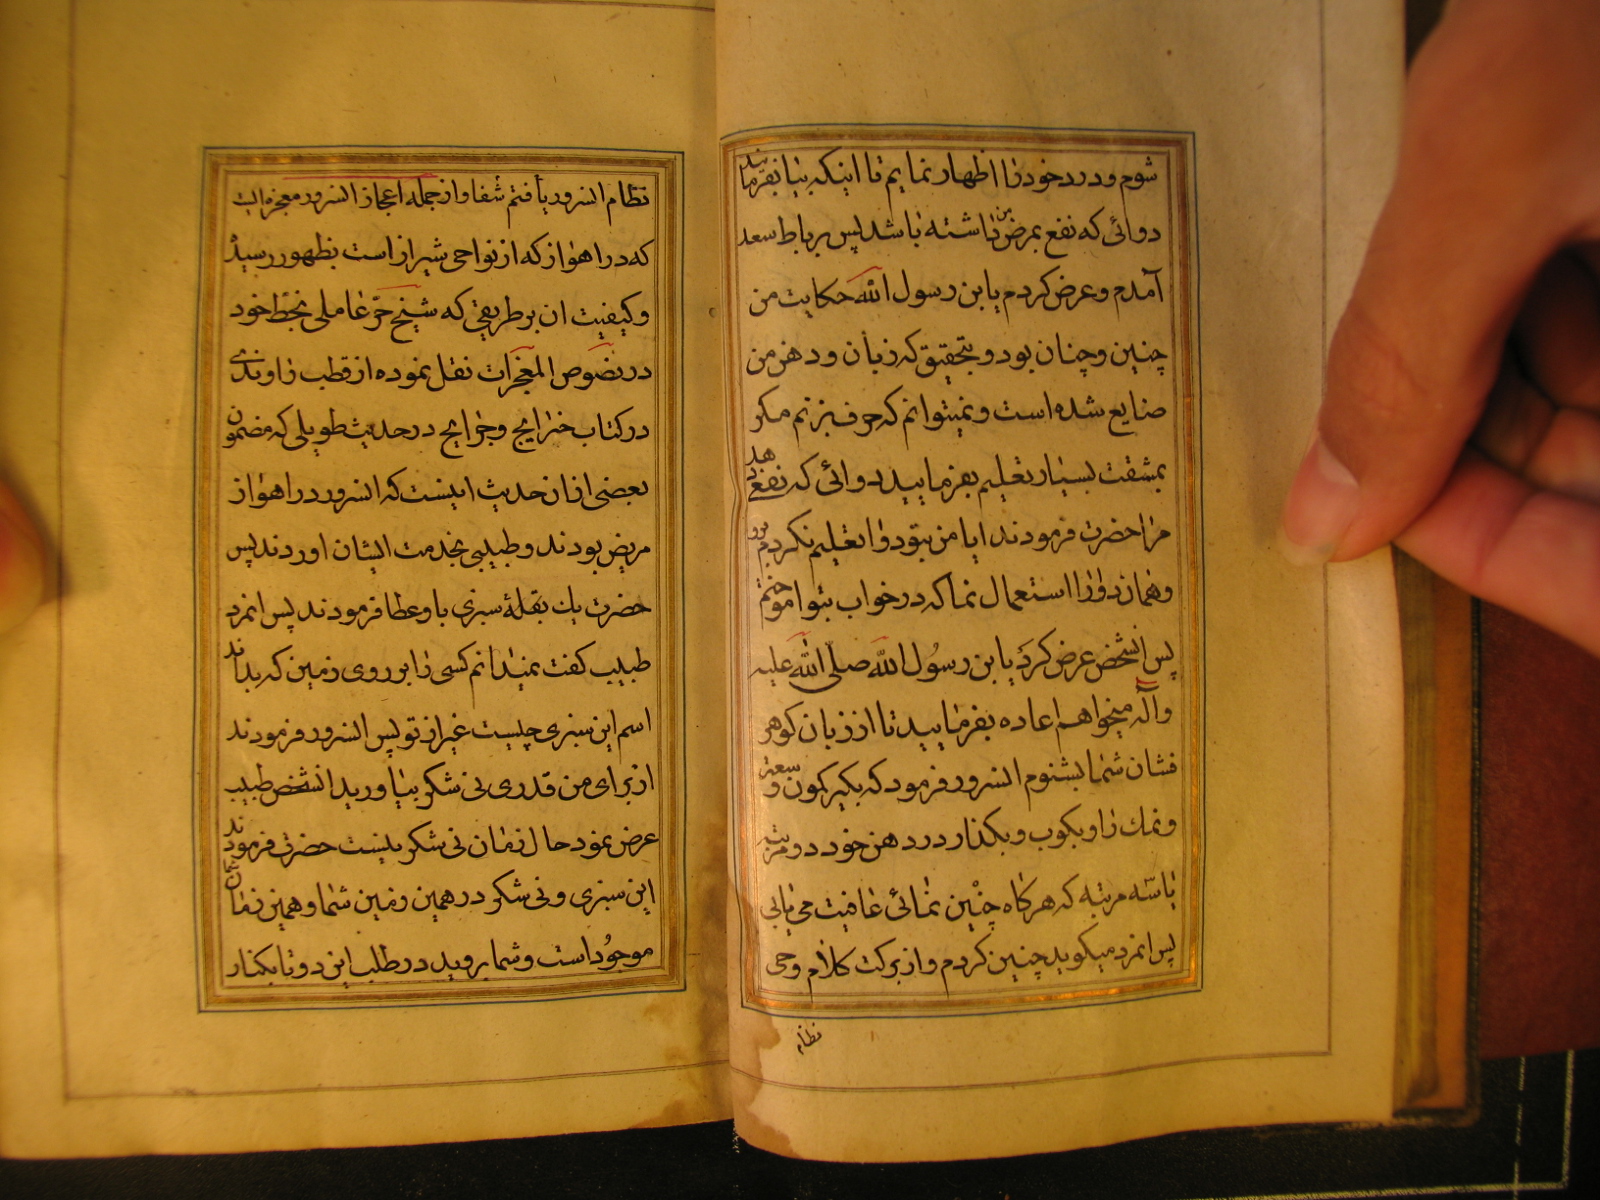 شوم و درد خود را اظهار نمایم تا اینکه بیا بفرمایند
دوائی که نفع بمرض من داشته باشد پس برباط سعد
آمدم و عرض کردم یا بن رسول الله حکایت من
چنین و چنان بود و بتحقیق که زبان و دهن من
ضایع شده است و نمیتوانم که حرف بزنم مکر
بمشقت بسیار تعلیم بفرمایید دوائی که نفع دهد
مرا حضرت فرمودند ایا من بتو دوا تعلیم نکردم برو
و همان دوا را استعمال نما که در خواب بتو اموختم
پس انشخص عرض کرد یا بن رسول الله صلی الله علیه
واله میخواهم اعاده بفرمایید تا از زبان کوهر
فشان شما بشنوم انسرور فرمود که بکیر کمون و سعتر
و نمک را و بکوب و بکذار در دهن خود دو مرتبه
یا سه مرتبه که هرکاه چنین نمائی عافیت می یابی
پس انمرد میکوید چنین کردم و از برکت کلام وحی
نظام
نظام انسرور یافتم شفا و از جمله اعجاز انسرور معجزه ایست
که در اهواز که از نواحی شیراز است بظهور رسید
و کیفیت ان بر طریقی که شیخ حر عاملی بخط خود
در نصوص المعجزات نقل نموده از قطب راوندی
در کتاب خرایج و جرایح در حدیث طویلی که مضمون
بعضی از ان حدیث اینست که انسرور در اهواز
مریض بودند و طبیبی بخدمت ایشان اوردند پس
حضرت یک بقلهٔ سبزی باو عطا فرمودند پس انمرد
طبیب کفت نمیدانم کسی را بر روی زمین که بداند
اسم این سبزی چیست غیر از تو پس انسرور فرمودند
از برای من قدری نی شکر بیاورید انشخص طبیب
عرض نمود حال زمان نی شکر نیست حضرت فرمودند
این سبزی و نی شکر در همین زمین شما و همین زمان شما
موجود است و شما بروید در طلب این دو تا بکنار